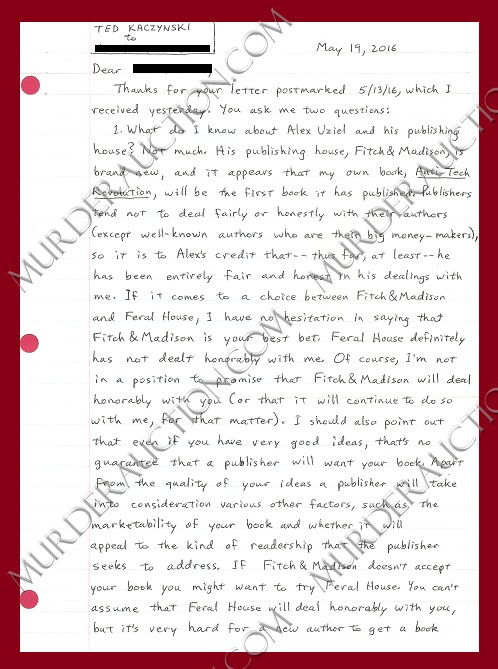 TED KACZYNSKI
to
May 19, 2016
Dear
Thanks for your letter postmarked 5/13/16, which I
received yesterday. You ask me two questions:
1. What do I know about Alex Uziel and his publishing
house? Not much. His publishing house, Fitch & Madison, is
brand new, and it appears that my own book, Anti-Tech
Revolution, will be the first book it has published. Publishers
tend not to deal fairly or honestly with their authors
(except well-known authors who are their big money-makers),
so it is to Alex's credit that -- thus far, at least -- he
has been entirely fair and honest in his dealings with
me. If it comes to a choice between Fitch & Madison
and Feral House, I have no hesitation in saying that
Fitch & Madison is your best bet. Feral House definitely
has not dealt honorably with me. Of course, I'm not
in a position to promise that Fitch & Madison will deal
honorably with you (or that it will continue to do so
with me, for that matter). I should also point out
that even if you have very good ideas, that's no
guarantee that a publisher will want your book. Apart
from the quality of your ideas a publisher will take
into consideration various other factors, such as the
marketability of your book and whether it will
appeal to the kind of readership that the publisher
seeks to address. If Fitch & Madison doesn't accept
your book you might want to try Feral House. You can't
assume that Feral House will deal honorably with you,
but it's very hard for a new author to get a book
MURDERAUCTION.COM
MURDERAUCTION.COM
MURDERAUCTION.COM
MURDERAUCTION.COM